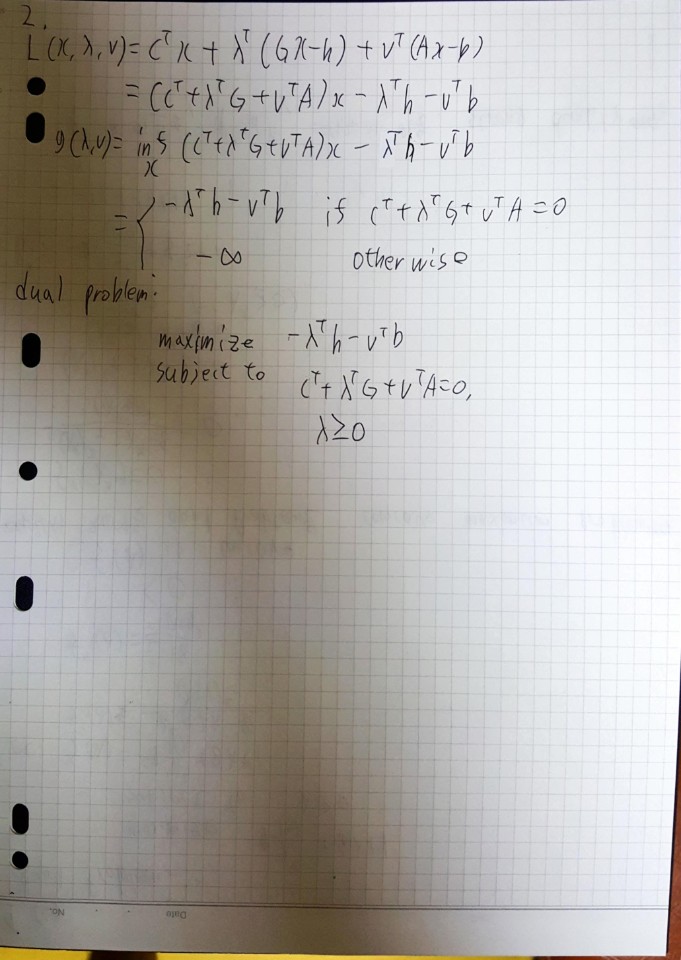 2.
L(x, λ, ν) = cᵀx + λᵀ(Gx-h) + νᵀ(Ax-b)
= (cᵀ+λᵀG+νᵀA)x - λᵀh - νᵀb
g(λ,ν) = inf (cᵀ+λᵀG+νᵀA)x - λᵀh - νᵀb
x
= { -λᵀh - νᵀb if cᵀ+λᵀG+νᵀA = 0
-∞ otherwise
dual problem:
maximize -λᵀh - νᵀb
subject to cᵀ+λᵀG+νᵀA=0,
λ≥0
No.
Date